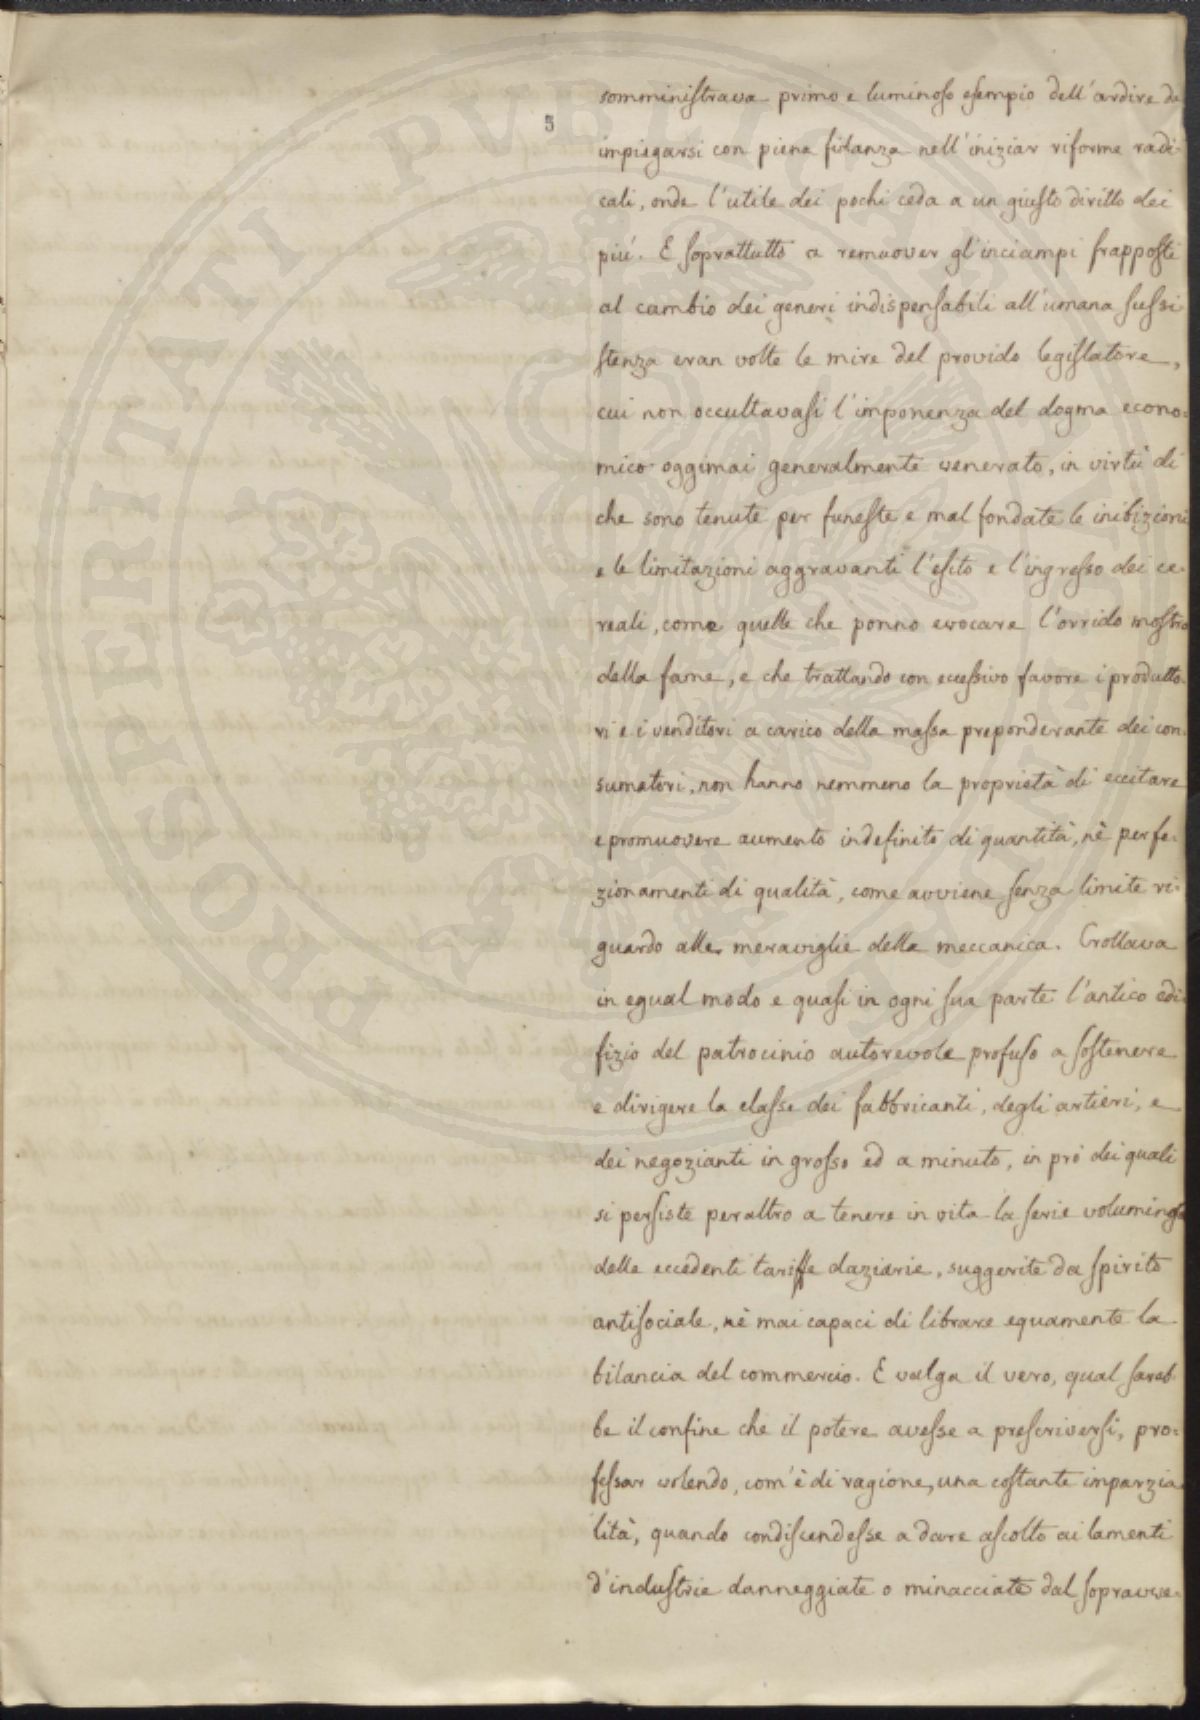 5
somministrava primo e luminoso esempio dell'ardire da
impiegarsi con piena fidanza nell'iniziar riforme radi-
cali, onde l'utile dei pochi ceda a un giusto diritto dei
piú. E soprattutto a remuover gl'inciampi frapposti
al cambio dei generi indispensabili all'umana sussi
stenza eran volte le mire del provido legislatore,
cui non occultavasi l'imponenza del dogma econo=
mico oggimai generalmente venerato, in virtù di
che sono tenute per funeste e mal fondate le inibizioni
e le limitazioni aggravanti l'esito e l'ingresso dei ce-
reali, come quelle che ponno evocare l'orrido mostro
della fame, e che trattando con eccessivo favore i produtto-
ri e i venditori a carico della massa preponderante dei con-
sumatori, non hanno nemmeno la proprietà di eccitare
e promuovere aumento indefinito di quantità, nè perfe-
zionamenti di qualità, come avviene senza limite ri-
guardo alle meraviglie della meccanica. Crollava
in egual modo e quasi in ogni sua parte l'antico edi
fizio del patrocinio autorevole profuso a sostenere
e dirigere la classe dei fabbricanti, degli artieri, e
dei negozianti in grosso ed a minuto, in prò dei quali
si persiste peraltro a tenere in vita la serie voluminosa
delle eccedenti tariffe daziarie, suggerite da spirito
antisociale, nè mai capaci di librare equamente la
bilancia del commercio. E valga il vero, qual sareb-
be il confine che il potere avesse a prescriversi, pro=
fessar volendo, com'è di ragione, una costante imparzia
lità, quando condiscendesse a dare ascolto ai lamenti
d'industrie danneggiate o minacciate dal sopravve-
PROSPERITATI PVBLICAE